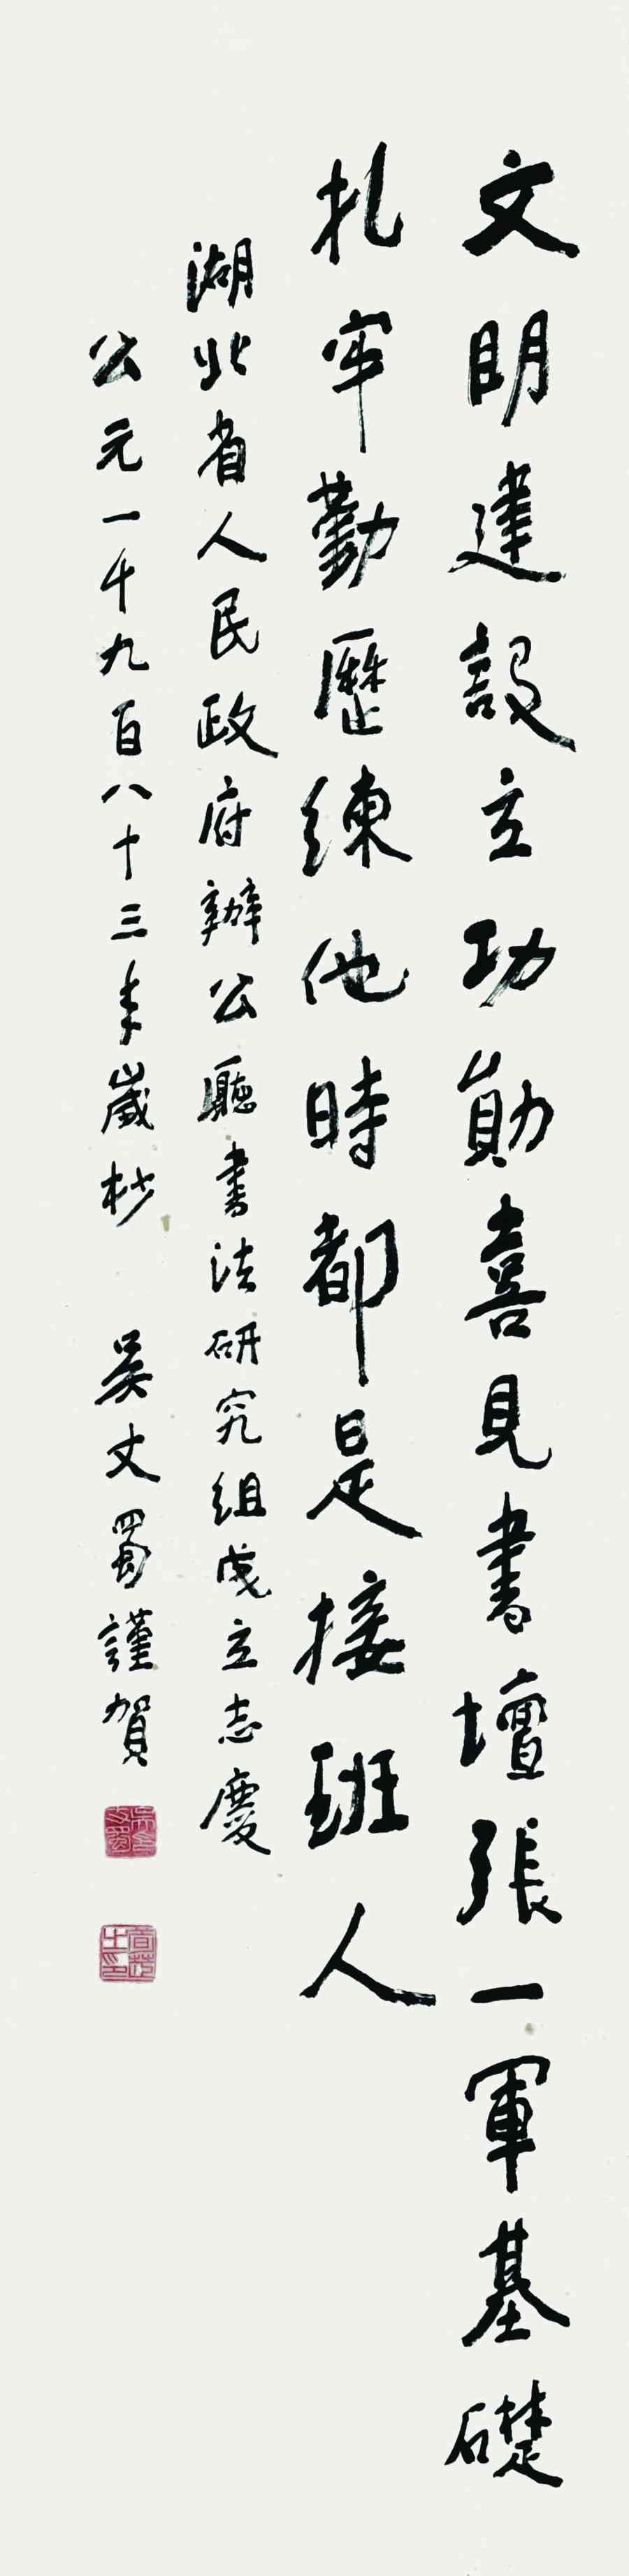 文明建設立功勛喜見書壇張一軍基礎
扎牢勤歷練他時都是接班人
湖北省人民政府辦公廳書法研究組成立志慶
公元一千九百八十三年歲杪 吳丈蜀謹賀
吳丈蜀